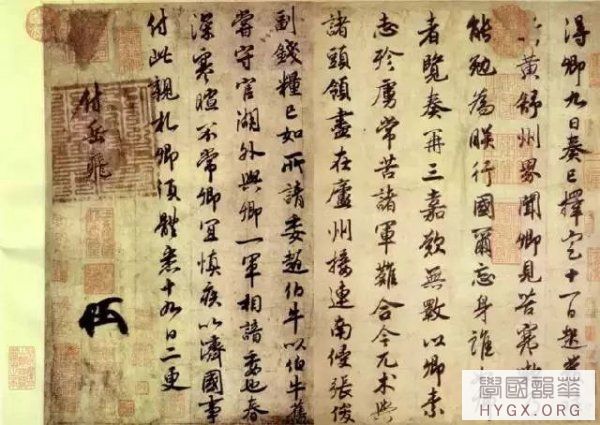 得卿九日奏已擇定十一日起
黃舒州界聞卿見苦寒
能勉為朕行國爾忘身誰
者覽奏再三嘉歎無斁以卿素
志殄虜常苦諸軍難合今兀朮與
諸頭領盡在廬州接連南侵張俊
副錢糧已如所請委趙伯牛以伯牛舊
嘗守官湖外與卿一軍相諳委也春
深寒暄不常卿宜慎疾以濟國事
付此親札卿須體悉十九日二更
付岳飛
學國韻華
HYGX.ORG